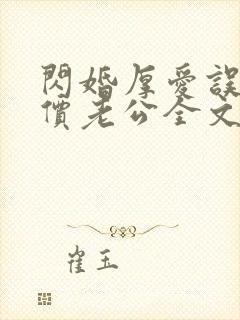 閃婚厚愛誤
價老公全文
崔玉